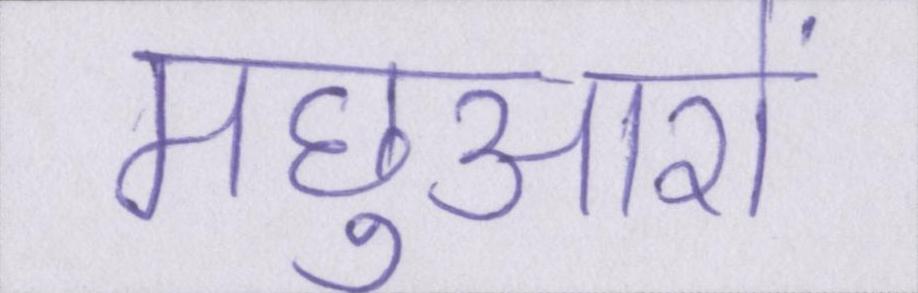 मछुआरों